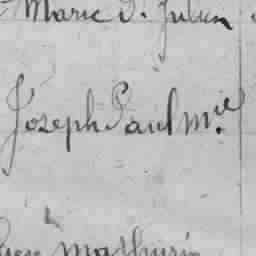 Marie J. Julien
Joseph Paul M.ie
Mathurin